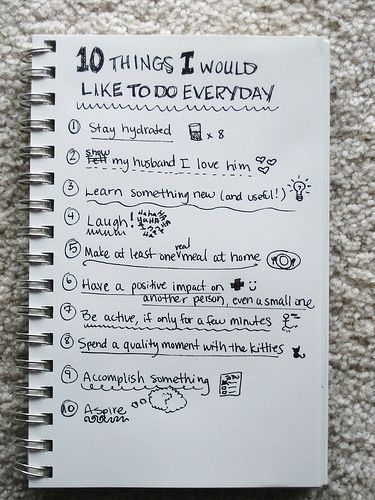 10 THINGS I WOULD
LIKE TO DO EVERYDAY
1 Stay hydrated x 8
show
2 tell my husband I love him
3 Learn something new (and useful!)
4 Laugh! Ha Ha Ha
real
5 Make at least one meal at home
6 Have a positive impact on
another person, even a small one
7 Be active, if only for a few minutes
8 Spend a quality moment with the kitties
9 Accomplish something
10 Aspire ?